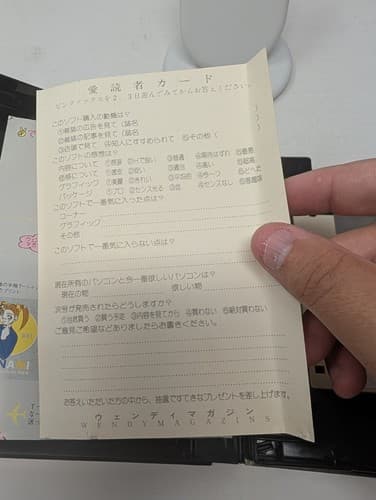 愛読者カード
ピンクィックスを2、3日遊んでみてからお答えください。
このソフト購入の動機は?
①雑誌の広告を見て(誌名
②雑誌の記事を見て(誌名
③店頭で見て ④知人にすすめられて ⑤その他(
このソフトの感想は?
内容について
価格について ①激安 ②安い ③適当 ④高い
グラフィック ①美麗 ②きれい ③平均的
パッケージ ①プロ ②センス光る ④センスなし
このソフトで一番気に入った点は?
コーナー
グラフィック
その他
このソフトで一番気に入らない点は?
現在所有のパソコンと今一番欲しいパソコンは?
現在の物 欲しい物
次号が発売されたらどうしますか?
①当然買う ②買う予定 ③内容を見てから ④買わない ⑤絶対買わない
ご意見ご希望などありましたらお書きください。
お答えいただいた方の中から、抽選ですてきなプレゼントを差し上げます。
ウェンディマガジン
WENDYMAGAZINS